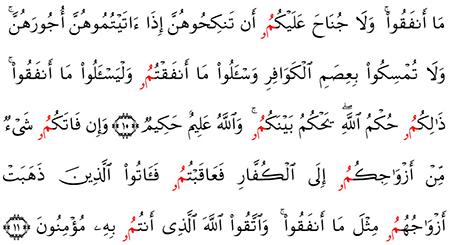 مَا أَنفَقُوا۟ ۚ وَلَا جُنَاحَ عَلَيْكُمُۥ أَن تَنكِحُوهُنَّ إِذَا ءَاتَيْتُمُوهُنَّ أُجُورَهُنَّ ۚ
وَلَا تُمْسِكُوا۟ بِعِصَمِ ٱلْكَوَافِرِ وَسْـَٔلُوا۟ مَا أَنفَقْتُمُۥ وَلْيَسْـَٔلُوا۟ مَا أَنفَقُوا۟ ۚ
ذَٰلِكُمُۥ حُكْمُ ٱللَّهِ ۖ يَحْكُمُ بَيْنَكُمُۥ ۚ وَٱللَّهُ عَلِيمٌ حَكِيمٌ ۝١٠ وَإِن فَاتَكُمُۥ شَىْءٌ
مِّنْ أَزْوَٰجِكُمُۥ إِلَى ٱلْكُفَّارِ فَعَاقَبْتُمُۥ فَـَٔاتُوا۟ ٱلَّذِينَ ذَهَبَتْ
أَزْوَٰجُهُمُۥ مِثْلَ مَا أَنفَقُوا۟ ۚ وَٱتَّقُوا۟ ٱللَّهَ ٱلَّذِى أَنتُمُۥ بِهِۦ مُؤْمِنُونَ ۝١١